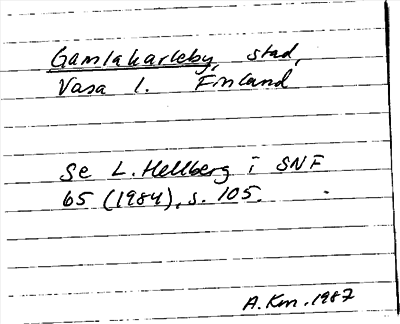 Gamlakarleby, stad,
Vasa l. Finland
Se L. Hellberg i SNF
65 (1984), s. 105.
A. Km. 1987